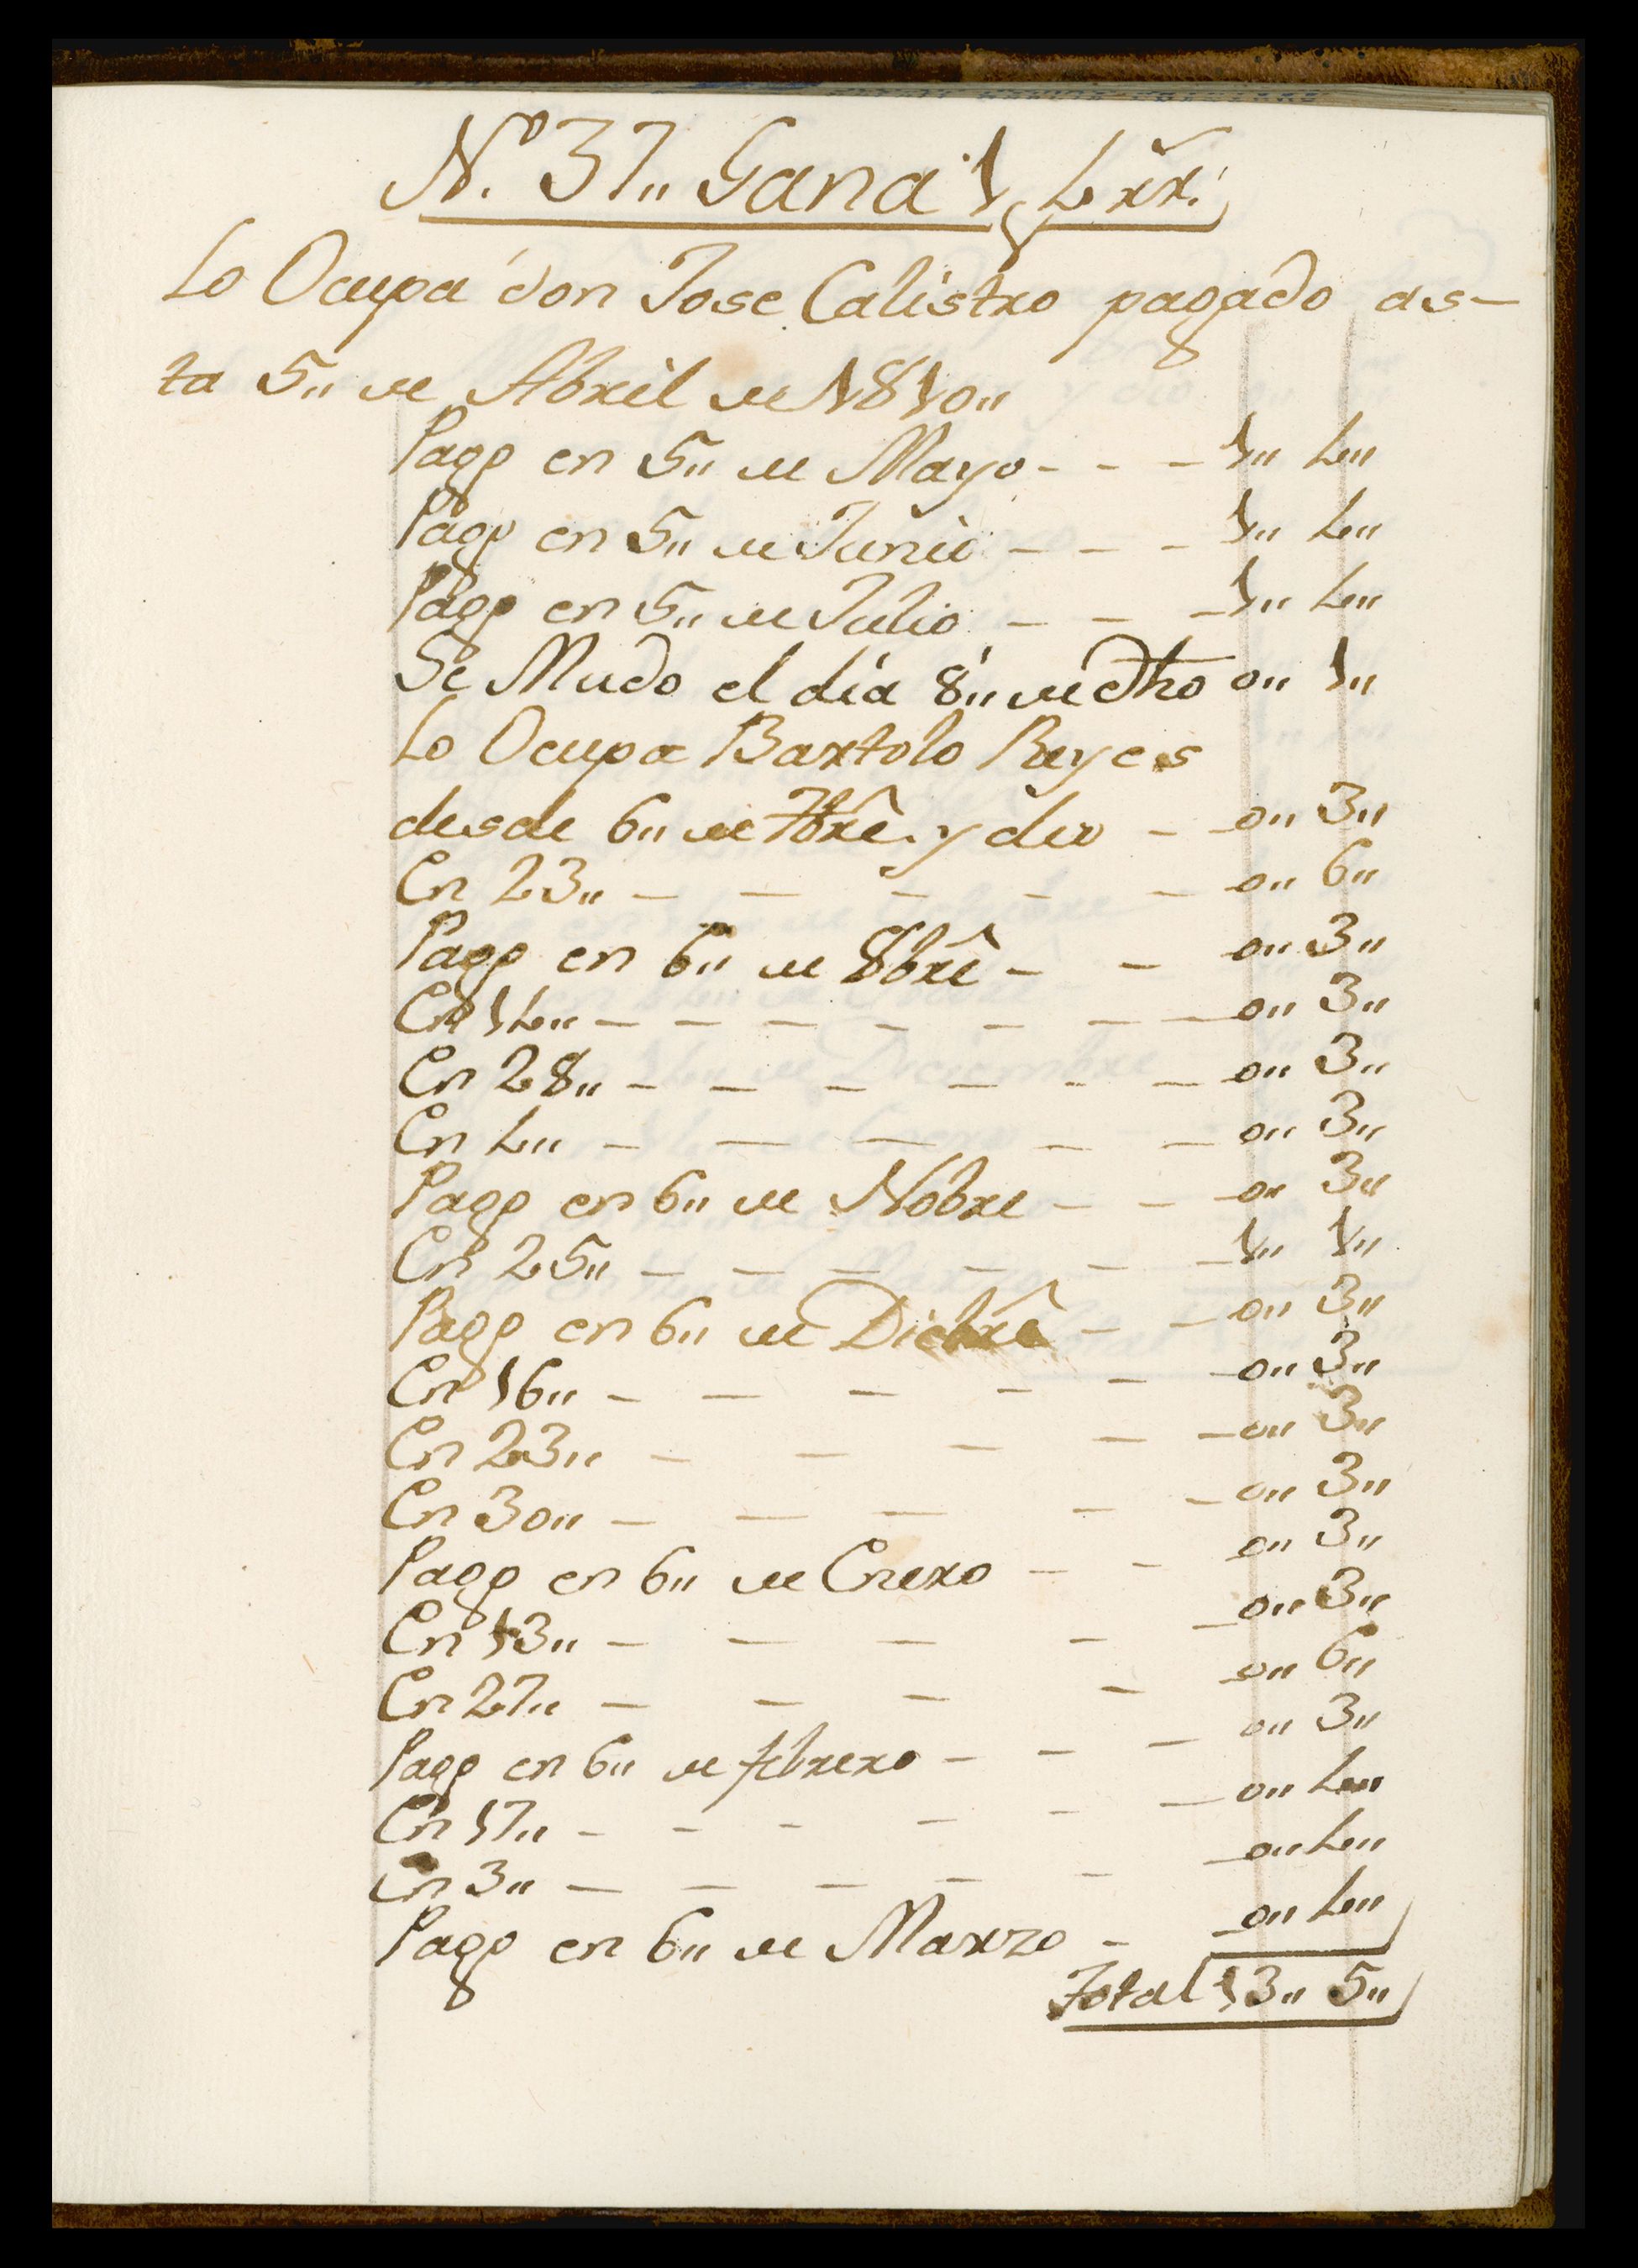 Nº 37,, Gana 1 p 4 rr.
Lo Ocupa don Jose Calistro pagado as-
ta 5,, de Abril de 1810,,
Pago en 5,, de Mayo - - - 1,, 4,,
Pago en 5,, de Junio - - - 1,, 4,,
Pago en 5,, de Julio - - - 1,, 4,,
Se Mudo el dia 8,, de dho 0,, 1,,
Lo Ocupa Bartolo Reyes
desde 6,, de 7bre. y dio - - 0,, 3,,
En 23,, - - - - - 0,, 6,,
Pago en 6,, de 8bre - - 0,, 3,,
En 14,, - - - - - - - 0,, 3,,
En 28,, - - - - - - 0,, 3,,
En 4,, - - - - - 0,, 3,,
Pago en 6,, de Nobre - - - 0,, 3,,
En 25,, - - - - - - 1,, 1,,
Pago en 6,, de Dicbre - - 0,, 3,,
En 16,, - - - - - - 0,, 3,,
En 23,, - - - - - 0,, 3,,
En 30,, - - - - - 0,, 3,,
Pago en 6,, de Enero - - 0,, 3,,
En 13,, - - - - - 0,, 3,,
En 27,, - - - - 0,, 6,,
Pago en 6,, de febrero - - - 0,, 3,,
En 17,, - - - - - - 0,, 4,,
En 3,, - - - - - - 0,, 4,,
Pago en 6,, de Marzo - - 0,, 4,,
Total 13,, 5,,